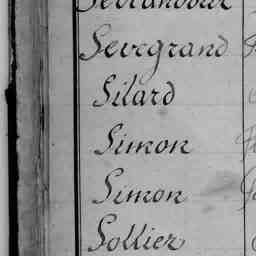 Sevegrand
Silard
Simon
Simon
Sollier